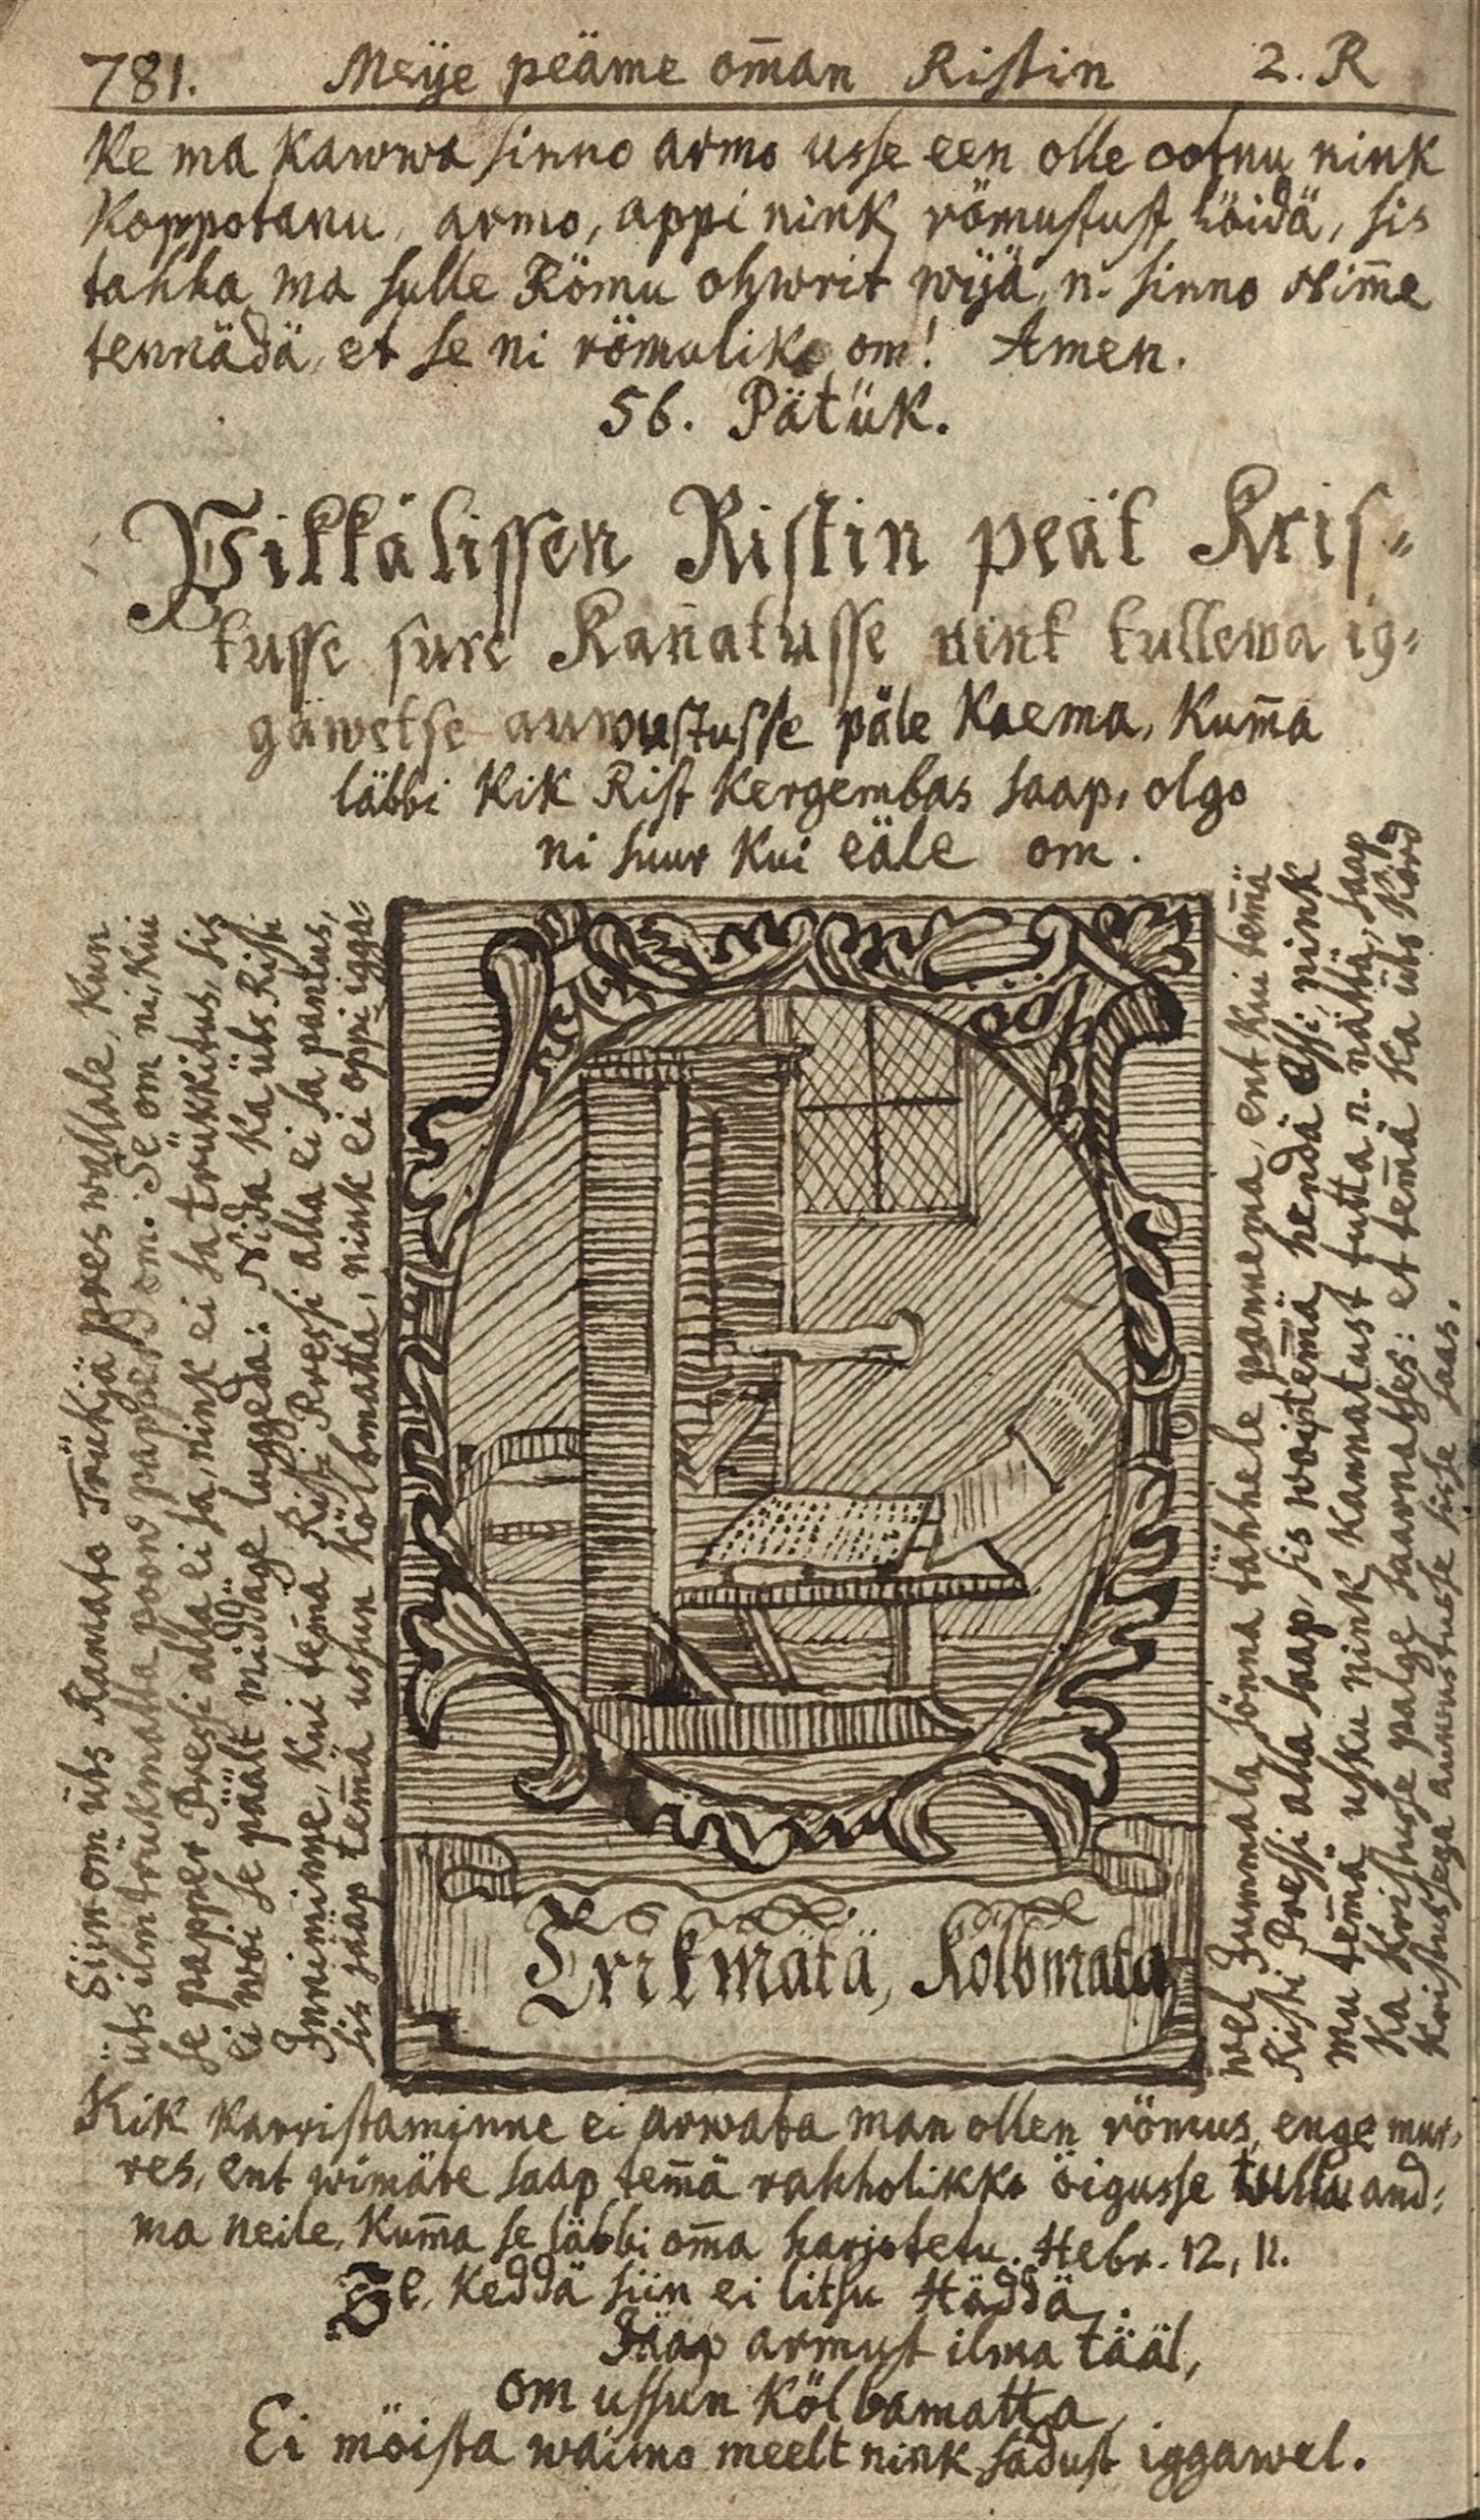 781. Meije peäme om̄an Ristin 2. R
Ke ma kawwa sinno armo usse een olle ootnu nink
Koppotanu, armo, appi nink römustust löidä, sis
tahha ma sulle Römu ohwrit wijä, n. sinno Nim̄e
tennädä, et se ni römulik om! Amen.
56. Pätük.
Pikkälissen Ristin peät Kris-
tusse sure Kan̄atusse nink tullewa ig-
gäwetse auwustusse päle Kaema, Kum̄a
läbbi Kik Rist Kergembas saap, olgo
ni suur Kui eäle om.
Siin om üts Ramato Trükjä pres wallale, Kun
üts ilm trükmatta poond papperd om. Se om ni, Kui
se papper Pressi alla ei sa, nink ei sa trükkitus, sis
ei woi se päält middäge luggeda: Nida Ka üts Risti
Inniminne, Kui tem̄ä Risti Pressi alla ei sa pantus,
sis jääp tem̄ä ussun Kölbmatta, nink ei oppi igga-
Trikmätä, Kölbmata
wel Jummala Sönna tähhele pannema, ent Kui tem̄ä
Risti Pressi alla saap, sis woip tem̄ä hendä essi nink
mu tem̄ä usku nink Kannatust tutta n. nähhä, saap
Ka Kristusse palge saarnatses: et tem̄ä Ka üts Körd
Kristussega auwustusse sisse saas.
Kik Karristaminne ei arwata man ollen römus, enge mur-
res, ent wimäte saap tem̄ä rahholikko öigusse tullu and-
ma neile, Kum̄a se läbbi om̄a harjotetu. Hebr. 12, 11.
Keddä siin ei litsu Häddä,
Jääp armust ilma tääl,
om ussun Kölbamatta,
Ei möista waimo meelt nink sädust iggawel.